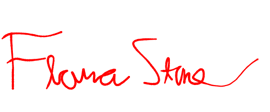 Flona Stone